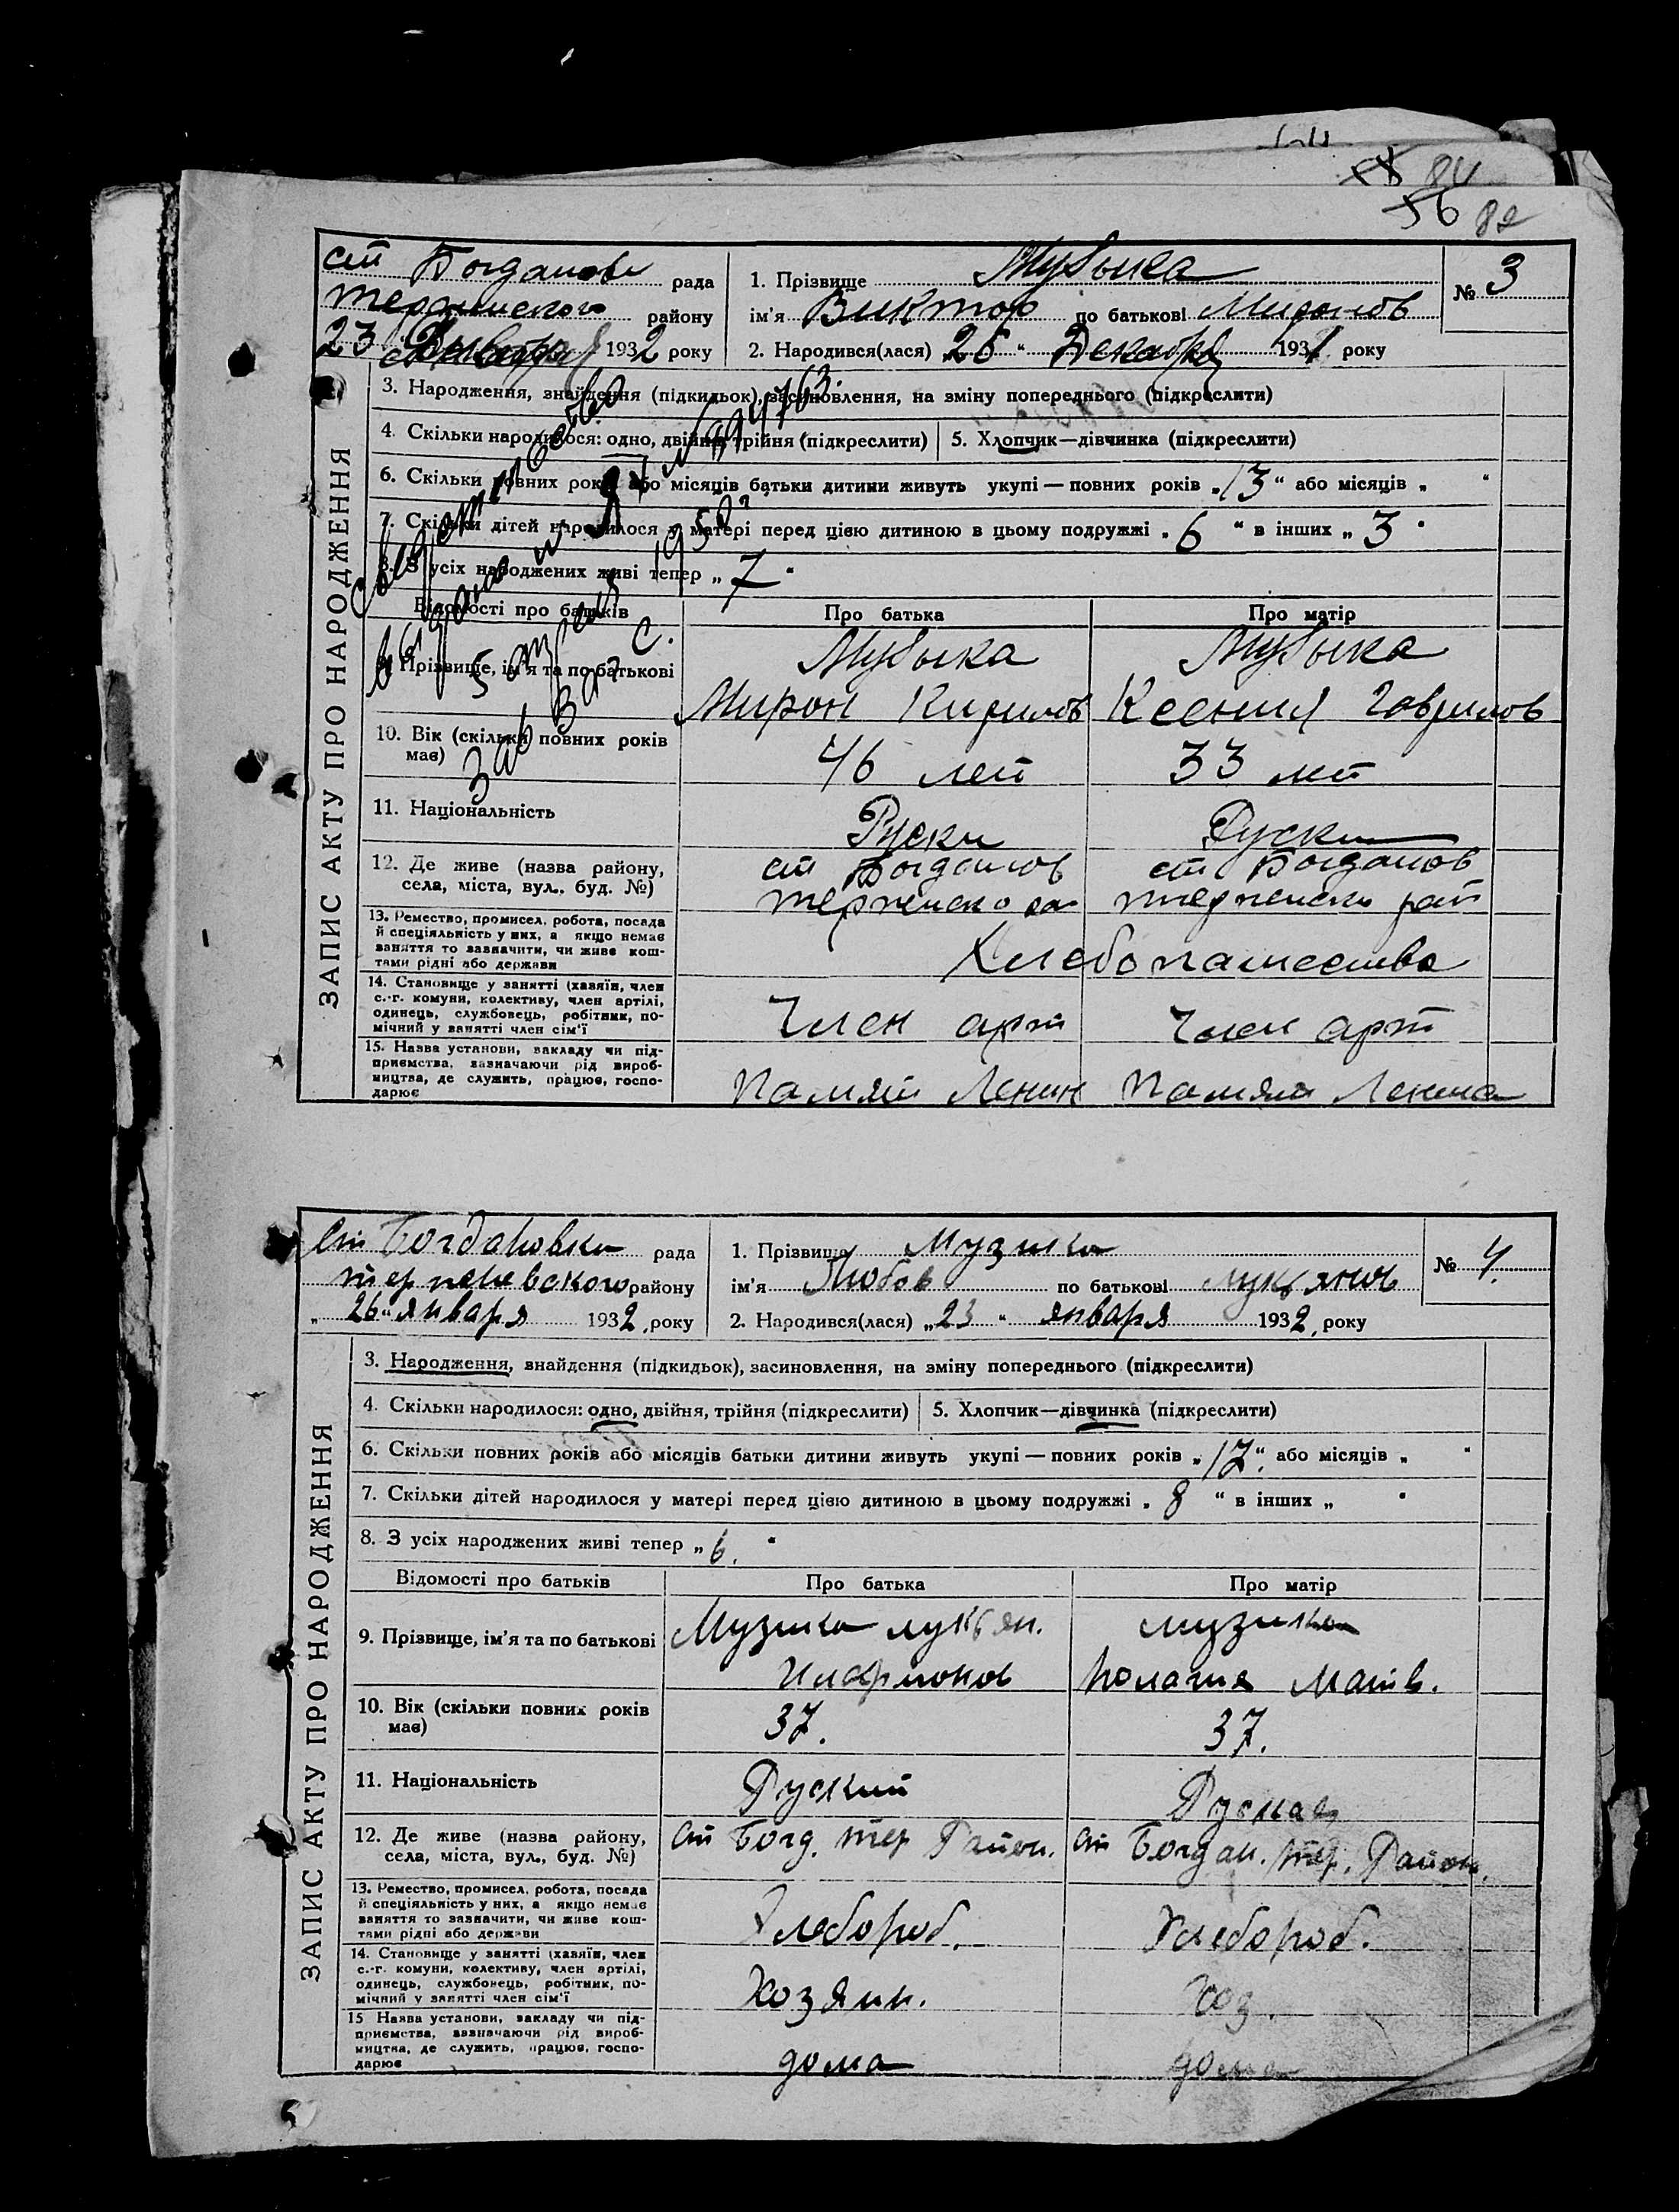 56 82
84
ст Богданов рада
района району
23 Января 1932 року
1. Прізвище Музыка
ім'я Виктор по батькові Миронов
№ 3
2. Народився(лася) 25 " Декабря 1931 року
ЗАПИС АКТУ ПРО НАРОДЖЕННЯ
3. Народження, знайдення (підкидьок), засиновлення, на зміну попереднього (підкреслити)
4. Скільки народилося: одно, двійня, трійня (підкреслити)
5. Хлопчик—дівчинка (підкреслити)
6. Скільки повних років або місяців батьки дитини живуть укупі — повних років „13“ або місяців „ “
7. Скільки дітей народилося у матері перед цією дитиною в цьому подружжі „6“ в інших „3“
8. З усіх народжених живі тепер „7“
Свидетельство
выдано
Зав Загс.
Відомості про батьків
Про батька
Про матір
9. Прізвище, ім'я та по батькові
Музыка
Мирон Кирилов
Музыка
Ксения Гаврилов
10. Вік (скільки повних років має)
46 лет
33 лет
11. Національність
Руски
Руски
12. Де живе (назва району,
села, міста, вул., буд. №)
ст Богданов
ст Богданов
13. Ремество, промисел, робота, посада
й спеціяльність у них, а якщо немає
заняття то зазначити, чи живе кош-
тами рідні або держави
Хлебопашества
14. Становище у занятті (хазяїн, член
с.-г. комуни, колективу, член артілі,
одинець, службовець, робітник, по-
мічний у занятті член сім'ї
Член арт
Член арт
15. Назва установи, закладу чи під-
приємства, зазначаючи рід вироб-
ництва, де служить, працює, госпо-
дарює
Памяти Ленин
Памяти Ленина
Ст Богдановка рада
терпеневского району
„26“ января 1932 року
1. Прізвище Музика
ім'я Любов по батькові Лукьянов
№ 4.
2. Народився(лася) „23 “ января 1932 року
ЗАПИС АКТУ ПРО НАРОДЖЕННЯ
3. Народження, знайдення (підкидьок), засиновлення, на зміну попереднього (підкреслити)
4. Скільки народилося: одно, двійня, трійня (підкреслити)
5. Хлопчик—дівчинка (підкреслити)
6. Скільки повних років або місяців батьки дитини живуть укупі — повних років „17“. або місяців „ “
7. Скільки дітей народилося у матері перед цією дитиною в цьому подружжі „ 8 “ в інших „ “
8. З усіх народжених живі тепер „6. “
Відомості про батьків
Про батька
Про матір
9. Прізвище, ім'я та по батькові
Музика лукьян.
Иларионов
музика
Полагия Матв.
10. Вік (скільки повних років
має)
37.
37.
11. Національність
Руский
Руская
12. Де живе (назва району,
села, міста, вул., буд. №)
ст Богд. тер Район.
ст Богдан. тер. Район.
13. Ремество, промисел, робота, посада
й спеціяльність у них, а якщо немає
заняття то зазначити, чи живе кош-
тами рідні або держави
Хлебороб.
Хлебороб.
14. Становище у занятті (хазяїн, член
с.-г. комуни, колективу, член артілі,
одинець, службовець, робітник, по-
мічний у занятті член сім'ї
Хозяин.
Хоз.
15 Назва установи, закладу чи під-
приємства, зазначаючи рід вироб-
ництва, де служить, працює, госпо-
дарює
дома
дома